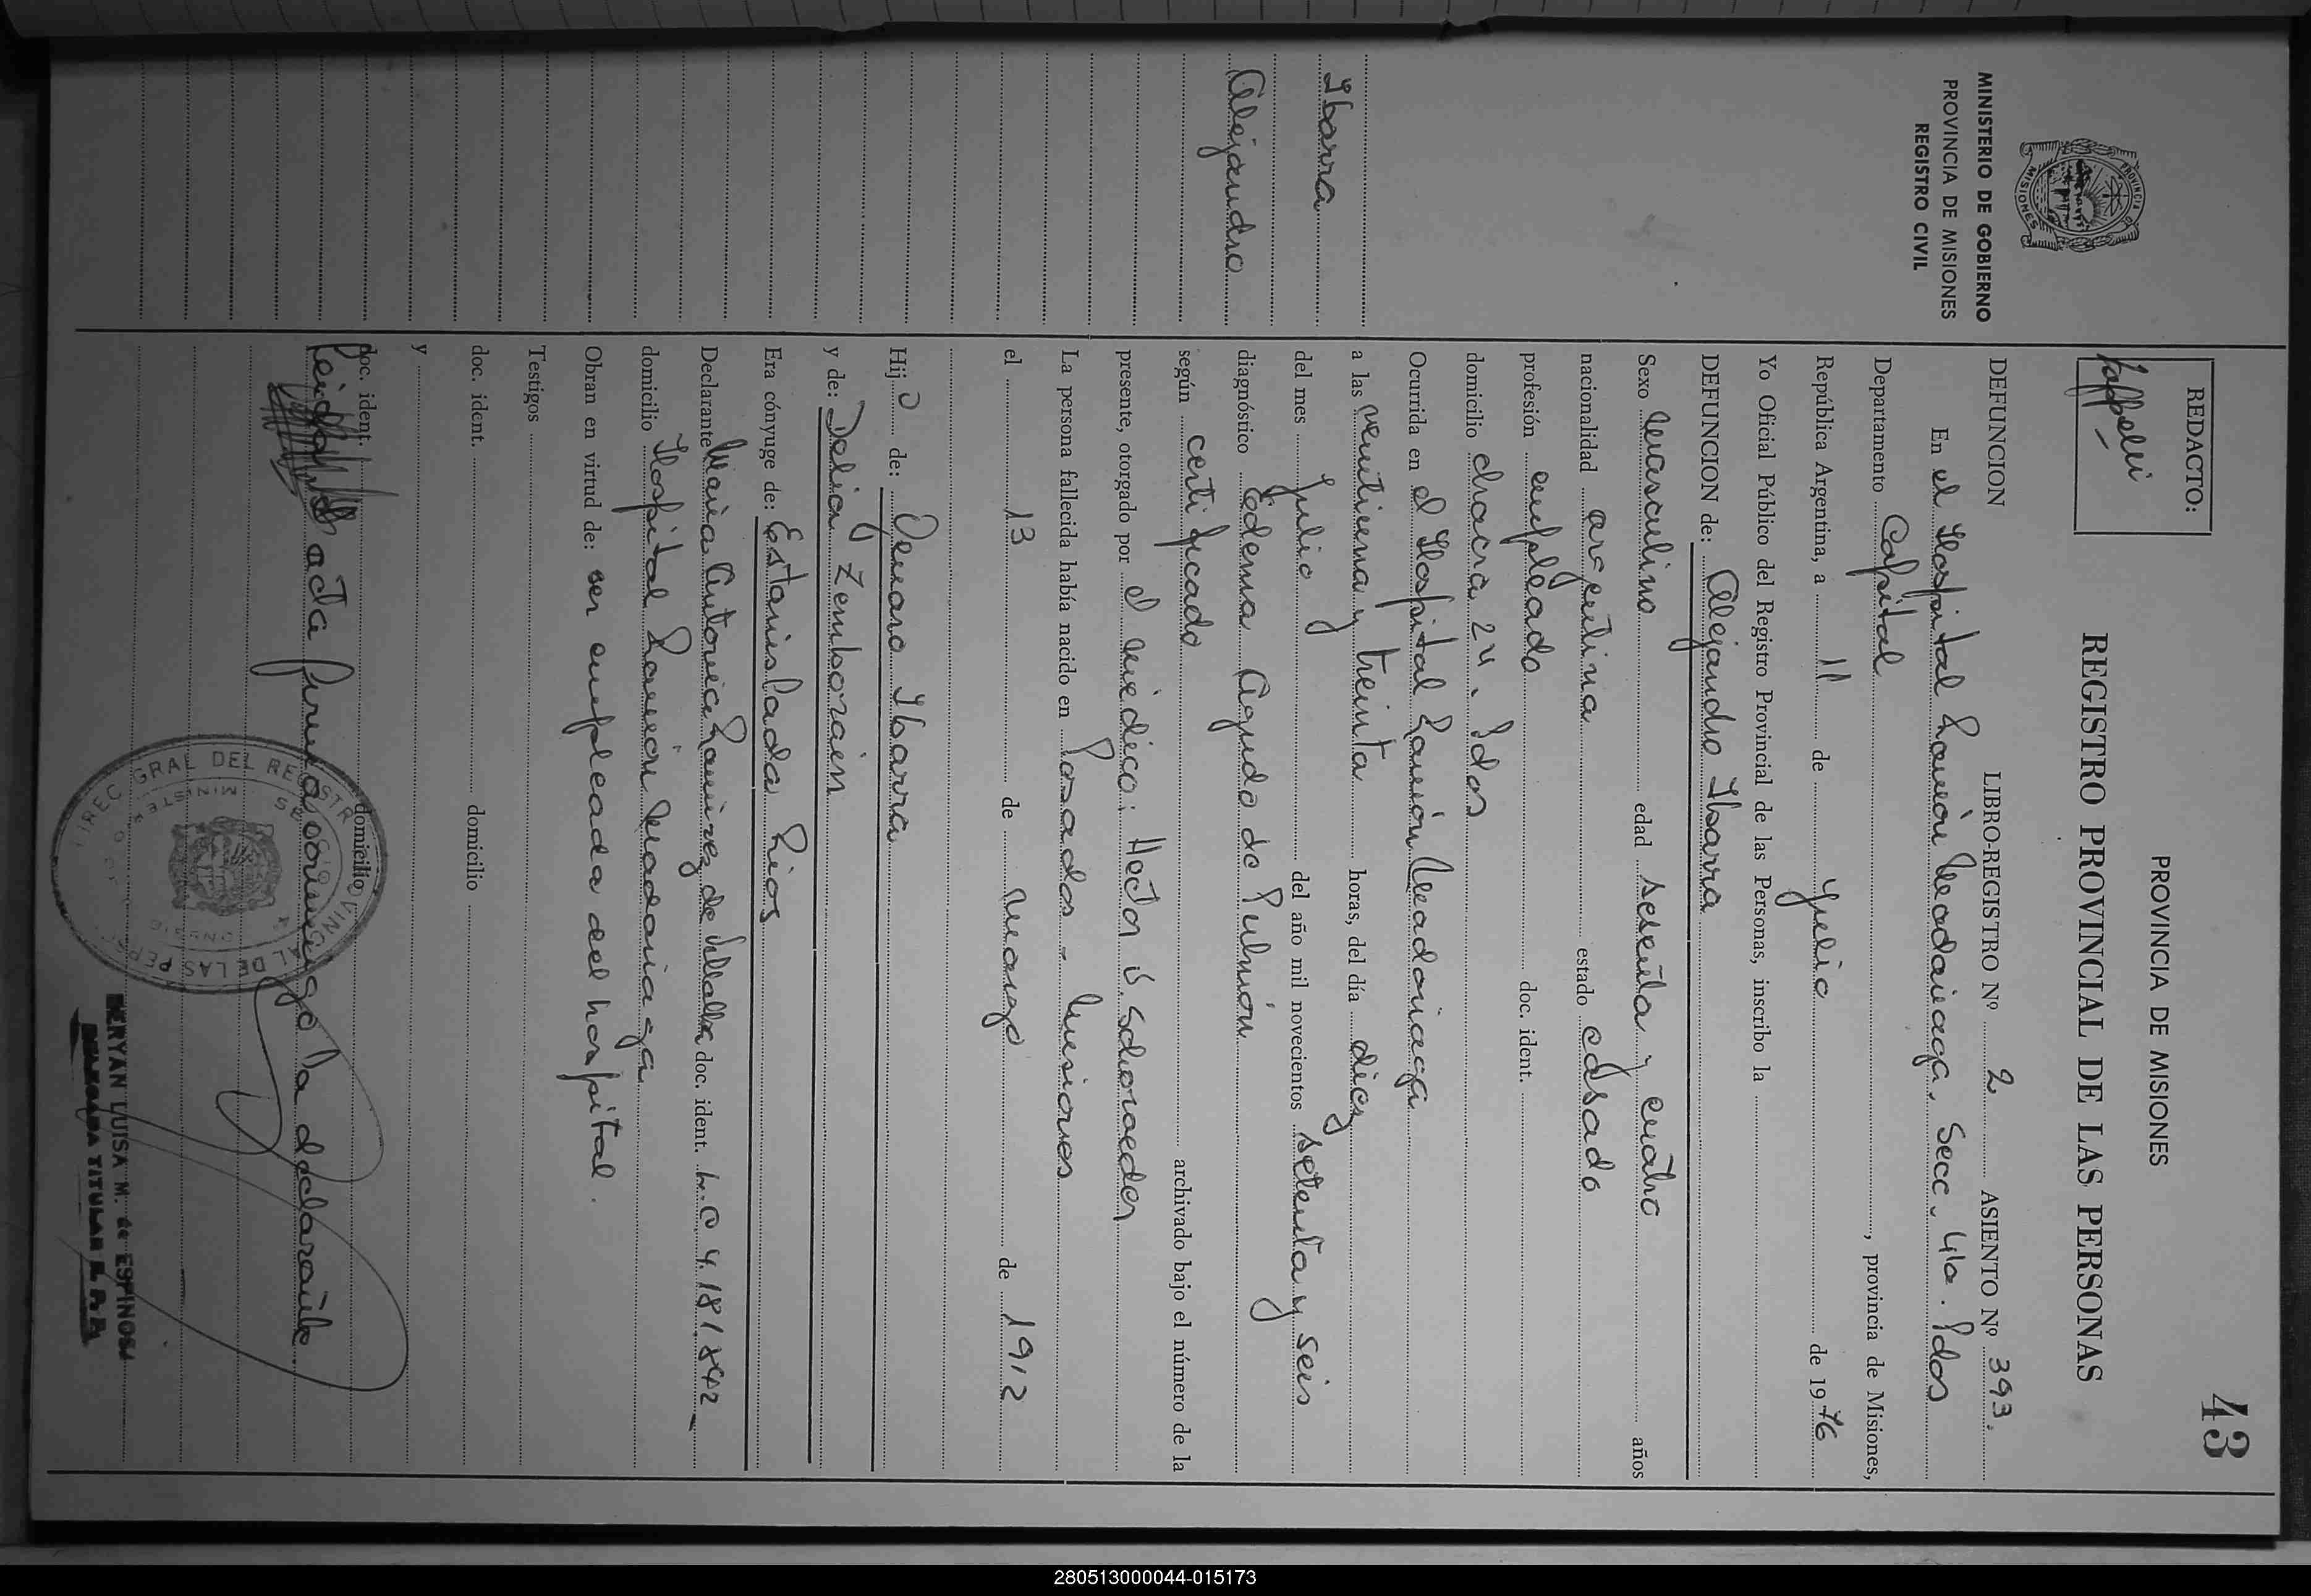 43
PROVINCIA DE MISIONES
REGISTRO PROVINCIAL DE LAS PERSONAS
REDACTO:
PROVINCIA MISIONES
MINISTERIO DE GOBIERNO
PROVINCIA DE MISIONES
REGISTRO CIVIL
Ibarra
Alejandro
DEFUNCION LIBRO-REGISTRO Nº 2 ASIENTO Nº 393.
En el Hospital Ramón Madariaga. Secc. 4ta. Pdas
Departamento Capital, provincia de Misiones,
República Argentina, a 11 de Julio de 1976
Yo Oficial Público del Registro Provincial de las Personas, inscribo la
DEFUNCION de: Alejandro Ibarra
Sexo masculino edad sesenta y cuatro años
nacionalidad argentina estado casado
profesión empleado doc. ident.
domicilio chacra 24. Pdas
Ocurrida en el Hospital Ramón Madariaga
a las veintiuna y treinta horas, del día diez
del mes Julio del año mil novecientos setenta y seis
diagnóstico Edema Agudo de Pulmón
según certificado archivado bajo el número de la
presente, otorgado por el médico: Hector S. Schoraeder
La persona fallecida había nacido en Posadas - Misiones
el 13 de marzo de 1912
Hijo de: Genaro Ibarra
y de: Delia Zemborain
Era cónyuge de: Estanislada Rios
Declarante Maria Antonia Ramirez de Villalba doc. ident. L.C 4.181.842
domicilio Hospital Ramón Madariaga
Obran en virtud de: ser empleada del hospital.
Testigos
doc. ident. domicilio
y
doc. ident. domicilio
Leida el acta firma conmigo la declarante.
DIREC GRAL DEL REGISTR PROVINCIAL DE LAS PERS
MERYAN LUISA M. de ESPINOSA
DELEGADA TITULAR R.P.P.
280513000044-015173